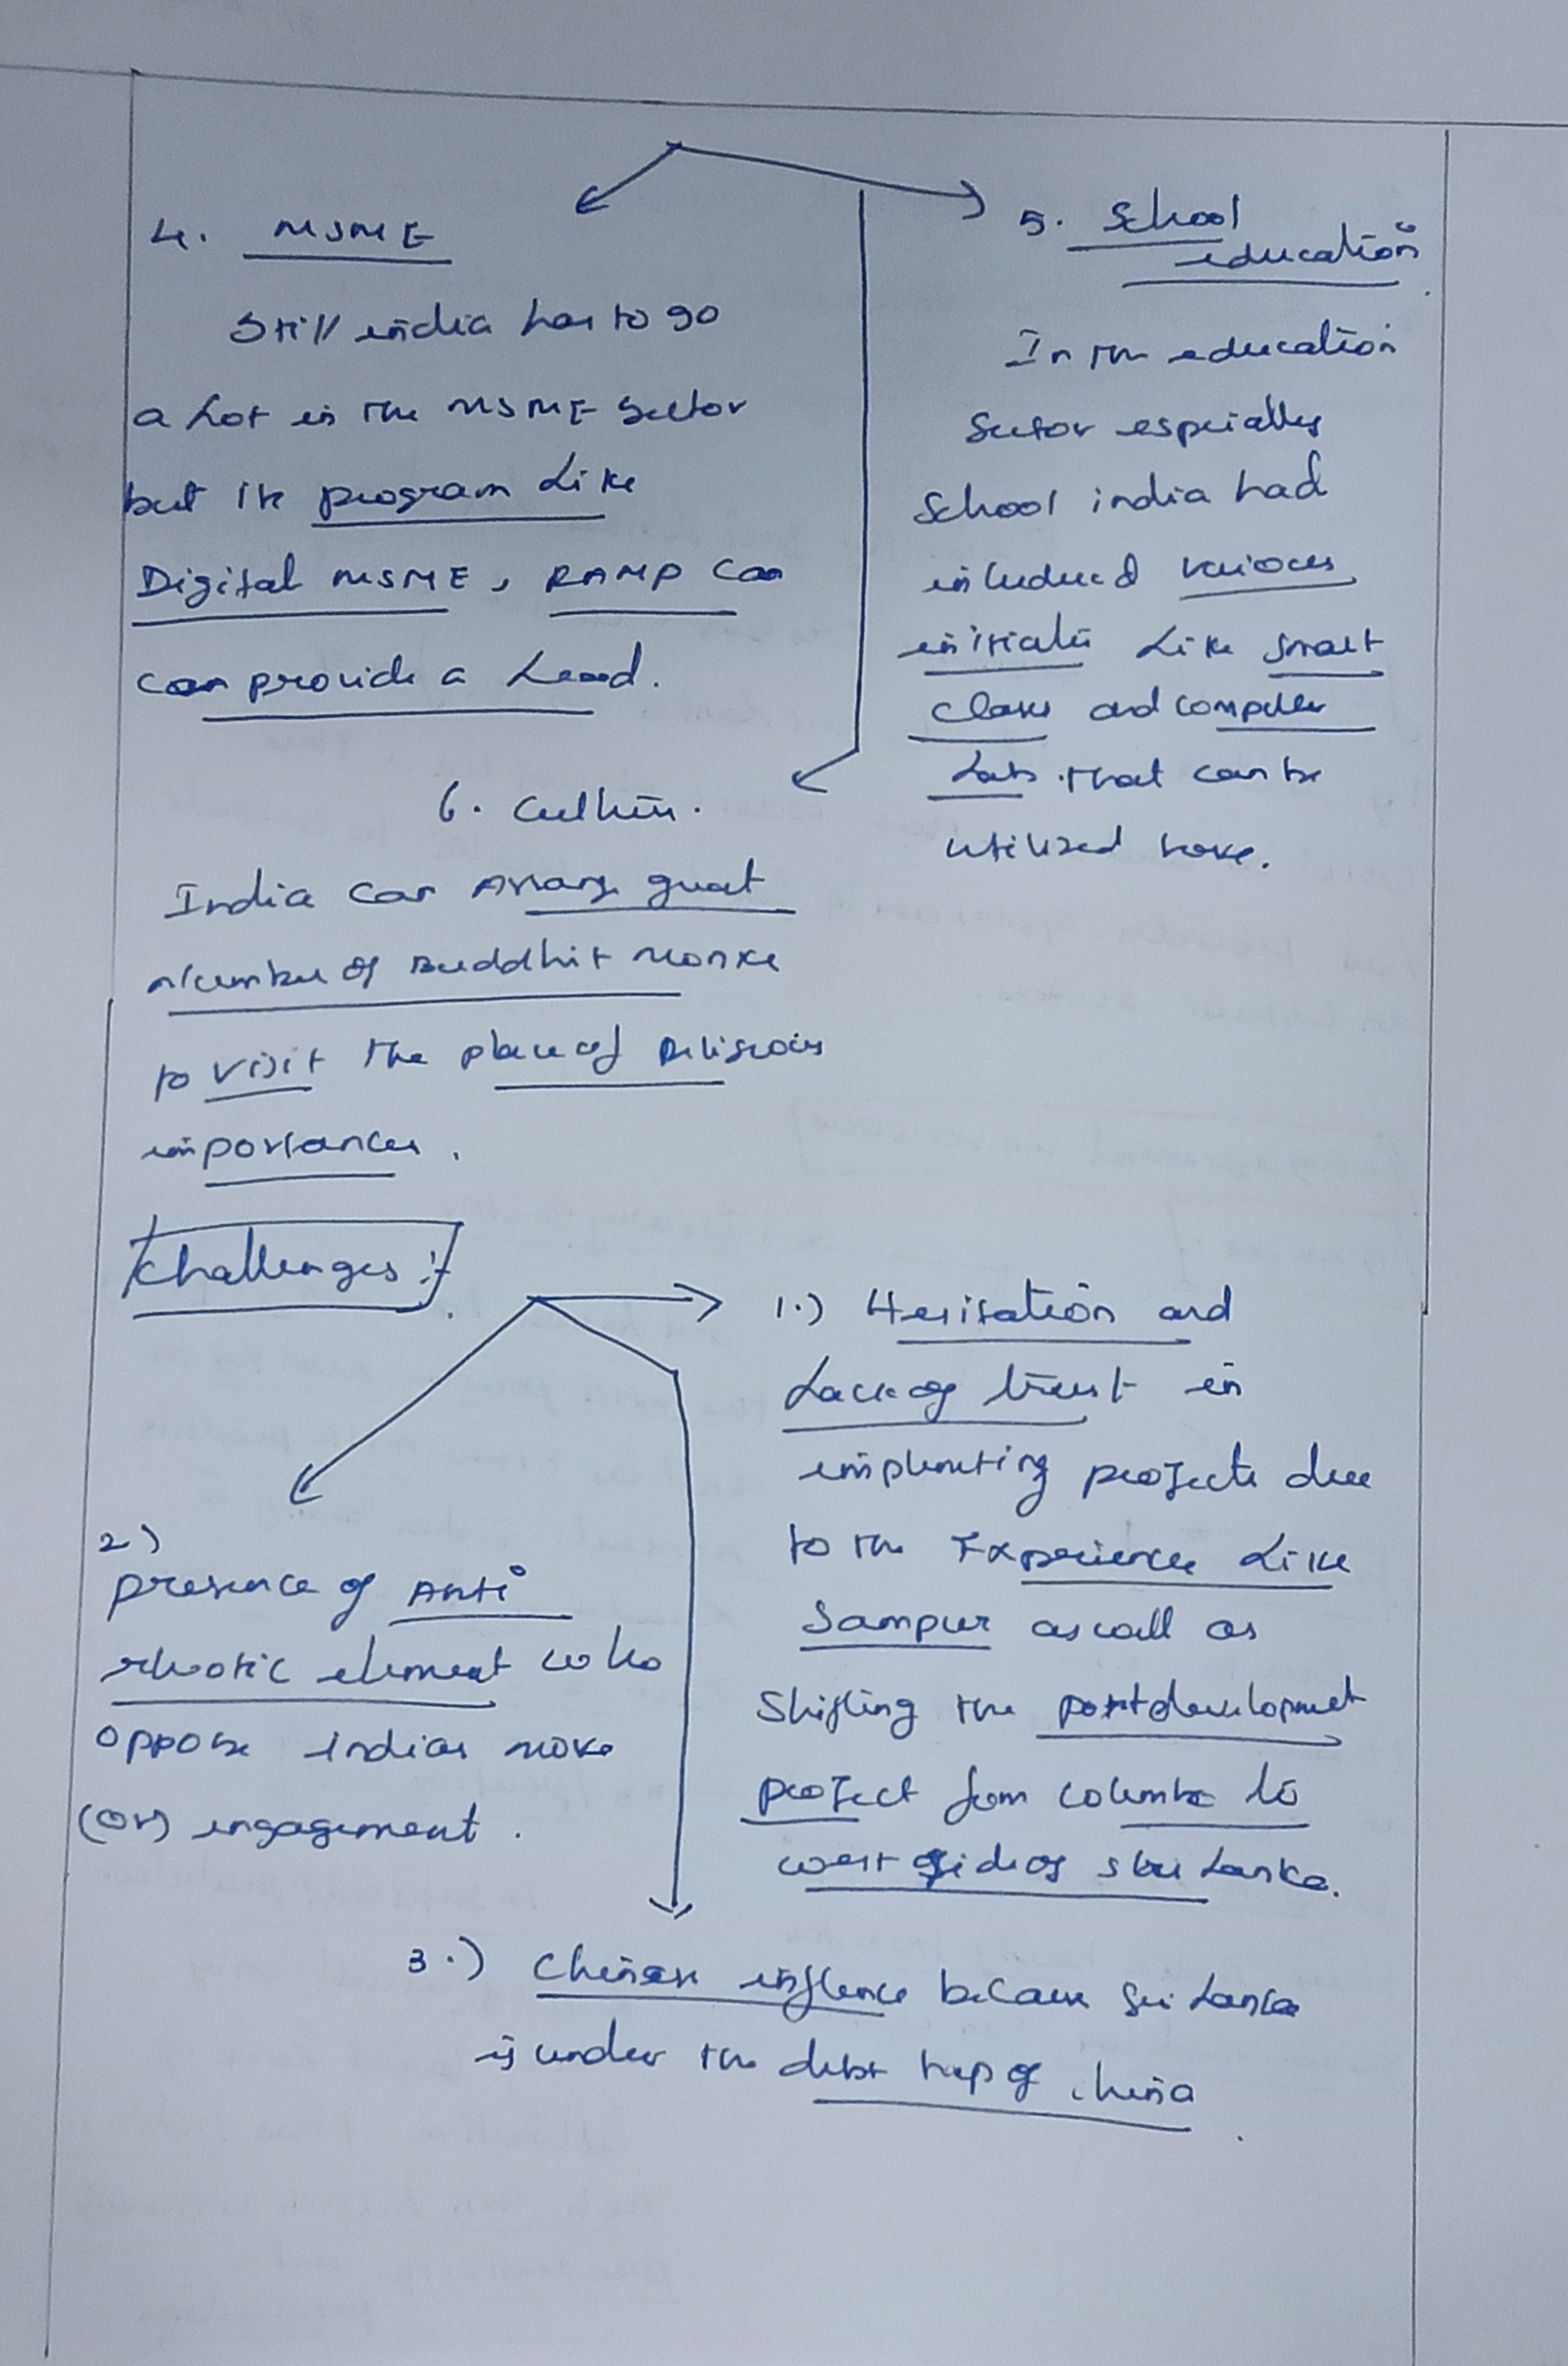 4. MSME
Still india has to go
a Lot in the MSME Sector
but it's program Like
Digital MSME, RAMP can
can provide a Lead.
5. School
education
In the education
Sector especially
School india had
included various
initiative Like smart
class and computer
Lab. that can be
utilized here.
6. Culture.
India can Arrange great
number of Buddhist monks
to visit the place of Religious
importances.
Challenges :-
1.) Hesitation and
Lack of trust in
implementing projects due
to the Experience Like
Sampur as well as
Shifting the port development
project from Colombo to
west side of Sri Lanka.
2)
presence of Anti
element who
oppose Indias move
(or) engagement.
3.) Chinese influence because Sri Lanka
is under the debt trap of China